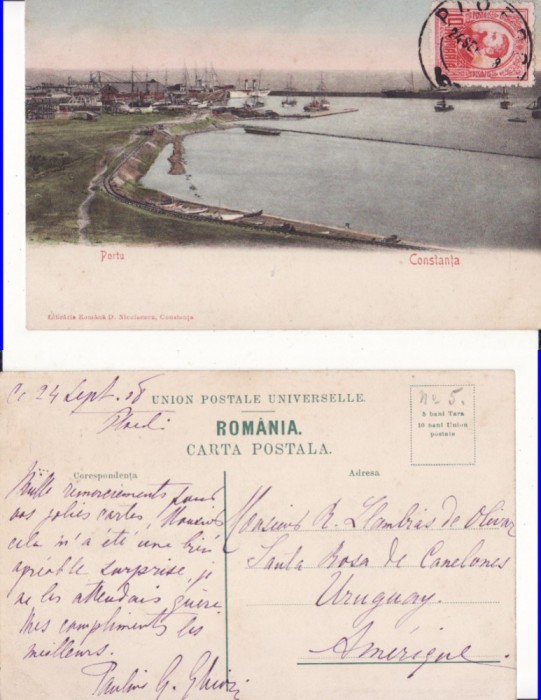 PLOESCI
24 SEP
10 BANI 10
Portu
Constanța
Librăria Română D. Nicolaescu, Constanța
Ce 24 Sept. 08
UNION POSTALE UNIVERSELLE.
ROMÂNIA.
CARTA POSTALA.
No 5.
5 bani Tara
10 bani Union
postale
Corespondența
Adresa
Mille remerciements pour
vos jolies cartes, Monsieur
cela m'a été une bien
agréable surprise, je
ne les attendais guère
Mes compliments les
meilleurs.
Pauline G.
Monsieur R. Llambias de Olivar
Santa Rosa de Canelones
Uruguay.
Amérique.